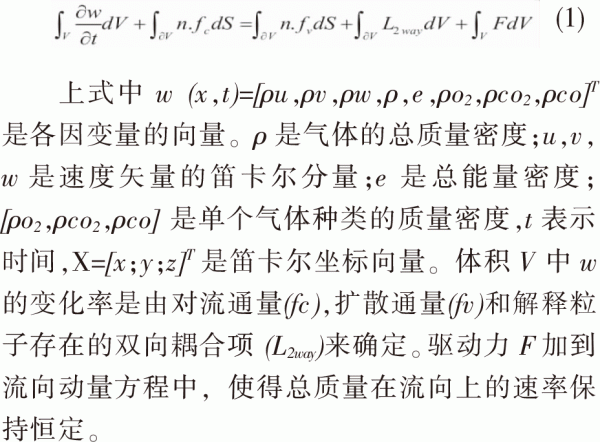 ∫_V ∂w/∂t dV + ∫_∂V n.f_c dS = ∫_∂V n.f_v dS + ∫_∂V L_2way dV + ∫_V FdV (1)
上式中 w (x,t)=[ρu,ρv,ρw,ρ,e,ρo₂,ρco₂,ρco]ᵀ
是各因变量的向量。ρ 是气体的总质量密度;u,v,
w 是速度矢量的笛卡尔分量;e 是总能量密度;
[ρo₂,ρco₂,ρco] 是单个气体种类的质量密度,t 表示
时间,X=[x;y;z]ᵀ 是笛卡尔坐标向量。体积 V 中 w
的变化率是由对流通量(fc),扩散通量(fv)和解释粒
子存在的双向耦合项 (L_2way)来确定。驱动力 F 加到
流向动量方程中，使得总质量在流向上的速率保
持恒定。